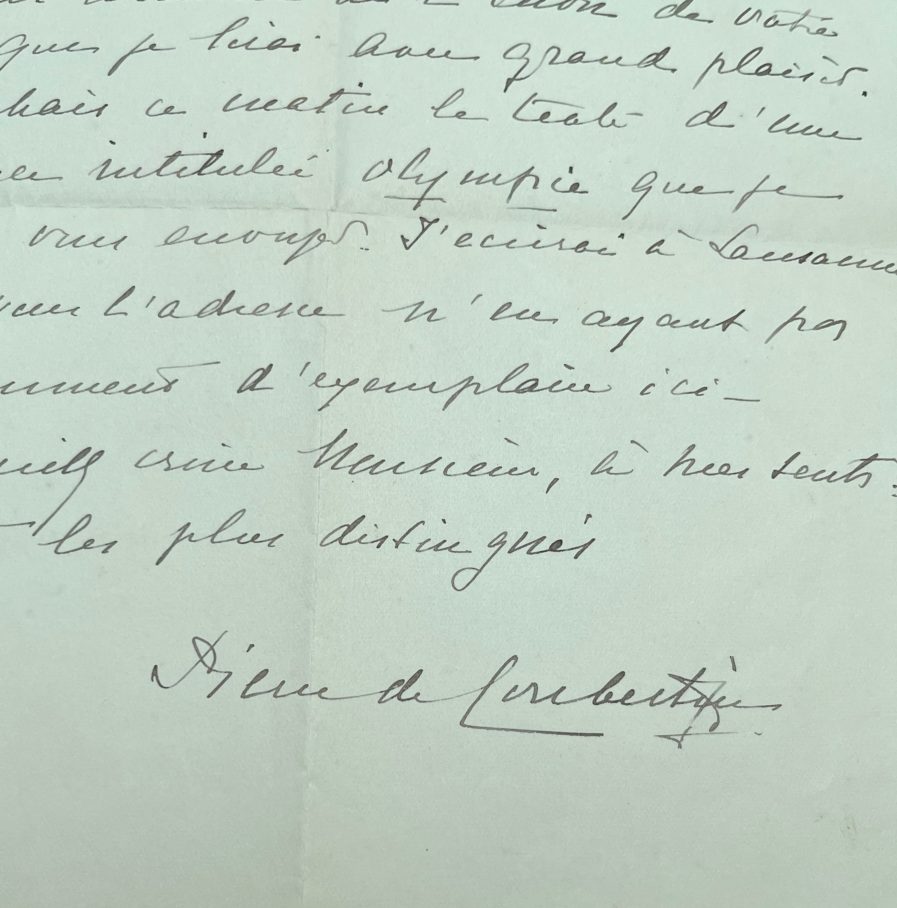 de votre
que je lirai avec grand plaisir.
ce matin le texte d'une
intitulée Olympie que je
vous envoyer. J'écrirai à Lausanne
l'adresse n'en ayant pas
d'exemplaire ici –
croire Monsieur, à mes sents
les plus distingués
Pierre de Coubertin